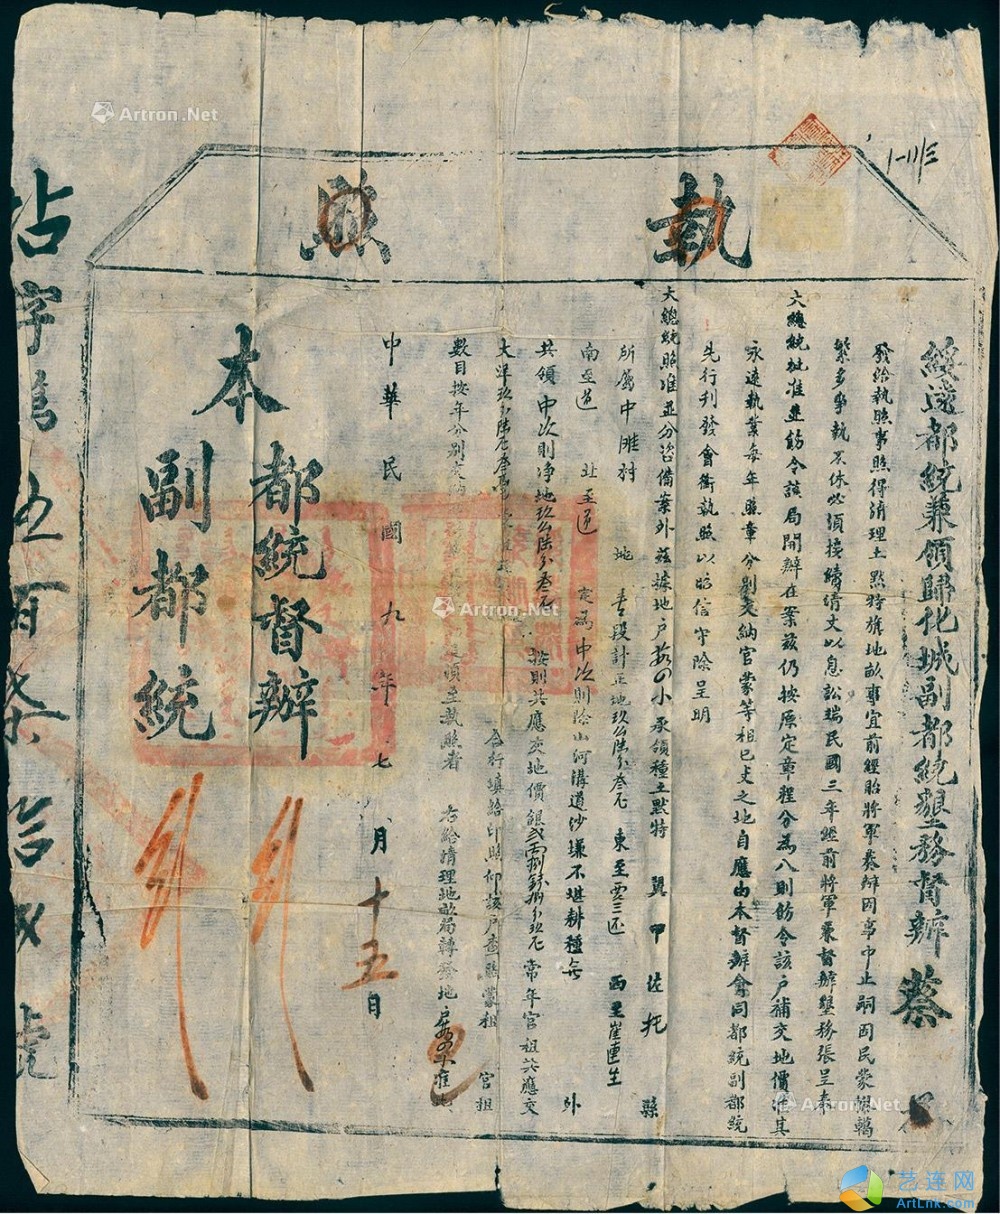 執照
綏遠都統兼領歸化城副都統墾務督辦蔡
發給執照事照得清理土默特旗地畝事宜前經貽將軍奏辦因事中止嗣因民蒙轇轕
繁多爭執不休必須接續清丈以息訟端民國三年經前將軍兼督辦墾務張呈奉
大總統批准並飭令該局開辦在案茲仍按原定章程分為八則飭令該戶補交地價准其
永遠執業每年照章分別交納官蒙等租已丈之地自應由本督辦會同都統副都統
先行刊發會銜執照以昭信守除呈明
大總統照准並分咨備案外茲據地戶 小承領種土默特 翼 甲 佐托 縣
所屬中 村 地 壹段計正地玖 陸分叁厘 東至賈三還 西至崔
南至道 北至道 定為中次則除山河溝道沙堿不堪耕種 外
共領中次則淨地玖 陸分叁厘 按則共應交地價銀 兩捌錢捌分玖厘 常年官租共應交
大洋玖分陸厘 合行填給印照仰該戶查照蒙租 官租
數目按年分別交納 須至執照者 右給清理地畝局轉發地戶 准此
中華民國九年七月十五日
本
都統督辦
副都統
拈字第五百柒拾 號
Artron.Net
Artron.Net
Artron.Net
艺连网
ArtLnk.com